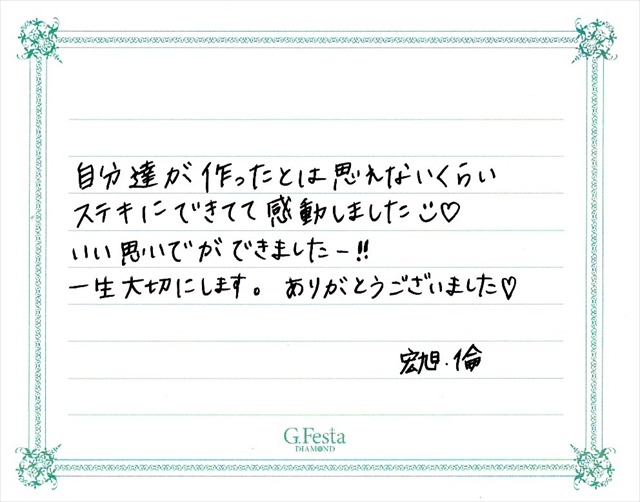 自分達が作ったとは思れないくらい
ステキにできてて感動しました☺♡
いい思いでができましたー!!
一生大切にします。ありがとうございました♡
宏旭・倫
G.Festa
DIAMOND